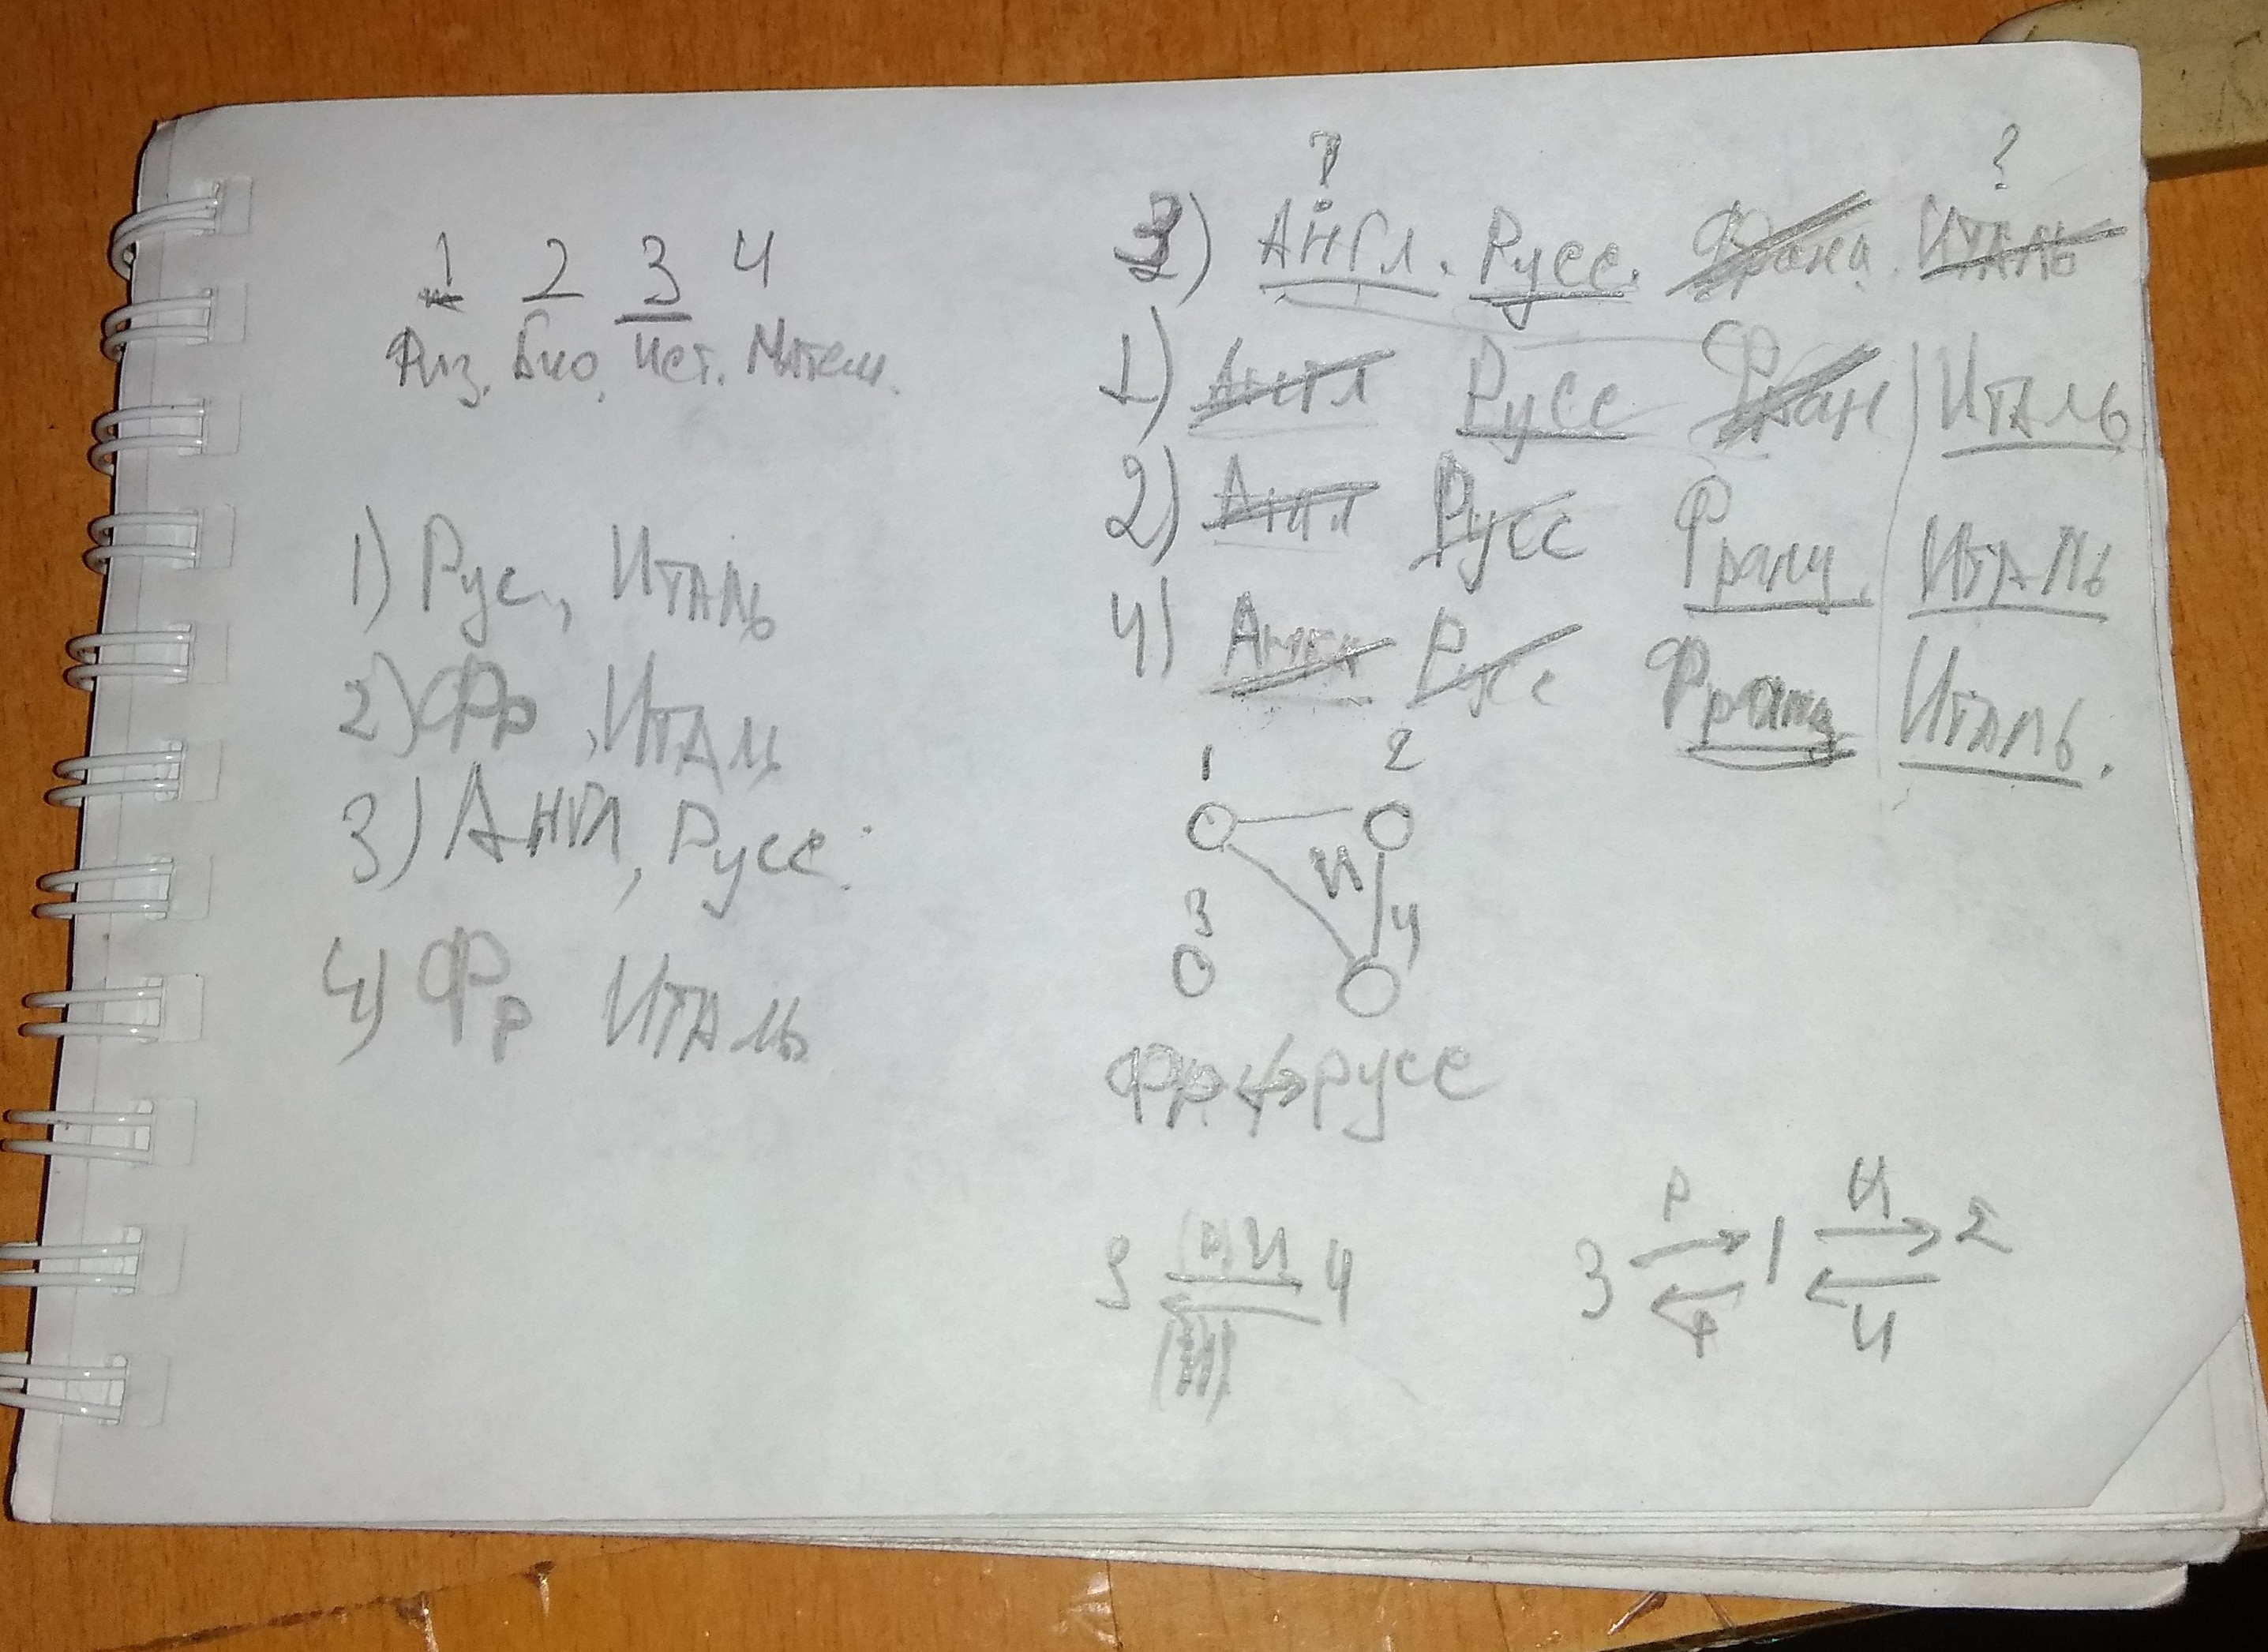 1 2 3 4
Физ. Био. Ист. Матем.
1) Рус., Италь
2) Фр, Италь
3) Англ, Русс.
4) Фр Италь
? ?
3) Англ. Русс. Франц. Италь
1) Англ Русс Фран Италь
2) Англ Русс Франц. Италь
4) Англ Русс Франц Италь.
1 2
И
3 4
Фр ↔ русс
Р И
3 1 2
И
И
3 4